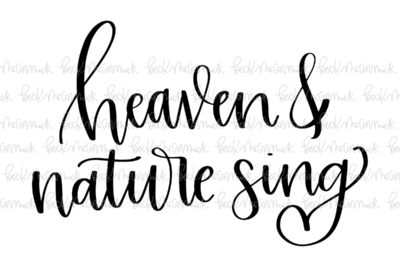 heaven &
nature sing